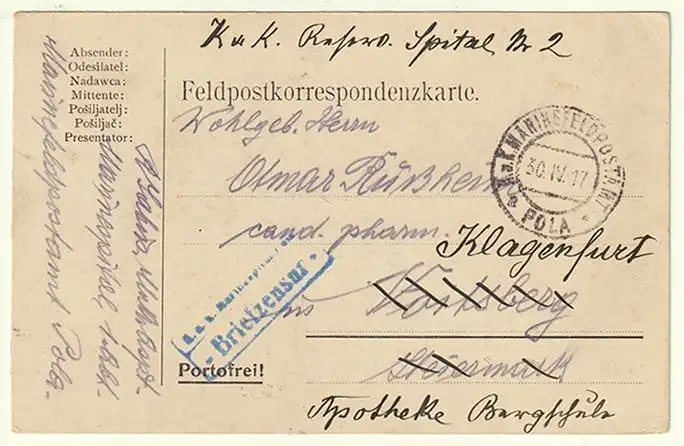 K u K. Reserv. Spital Nr 2
Absender:
Odesilatel:
Nadawca:
Mittente:
Pošiljatelj:
Pošiljač:
Presentator:
Feldpostkorrespondenzkarte.
Wohlgeb. Herrn
Otmar Rußheim
cand. pharm.
Klagenfurt
in Voitsberg
Steiermark
Portofrei!
Apotheke Bergschule
K.u.K. MARINEFELDPOSTAMT
30.IV.17
POLA
k. u. k. Marinespital
Briefzensur.
Marinespital
Marinefeldpostamt Pola